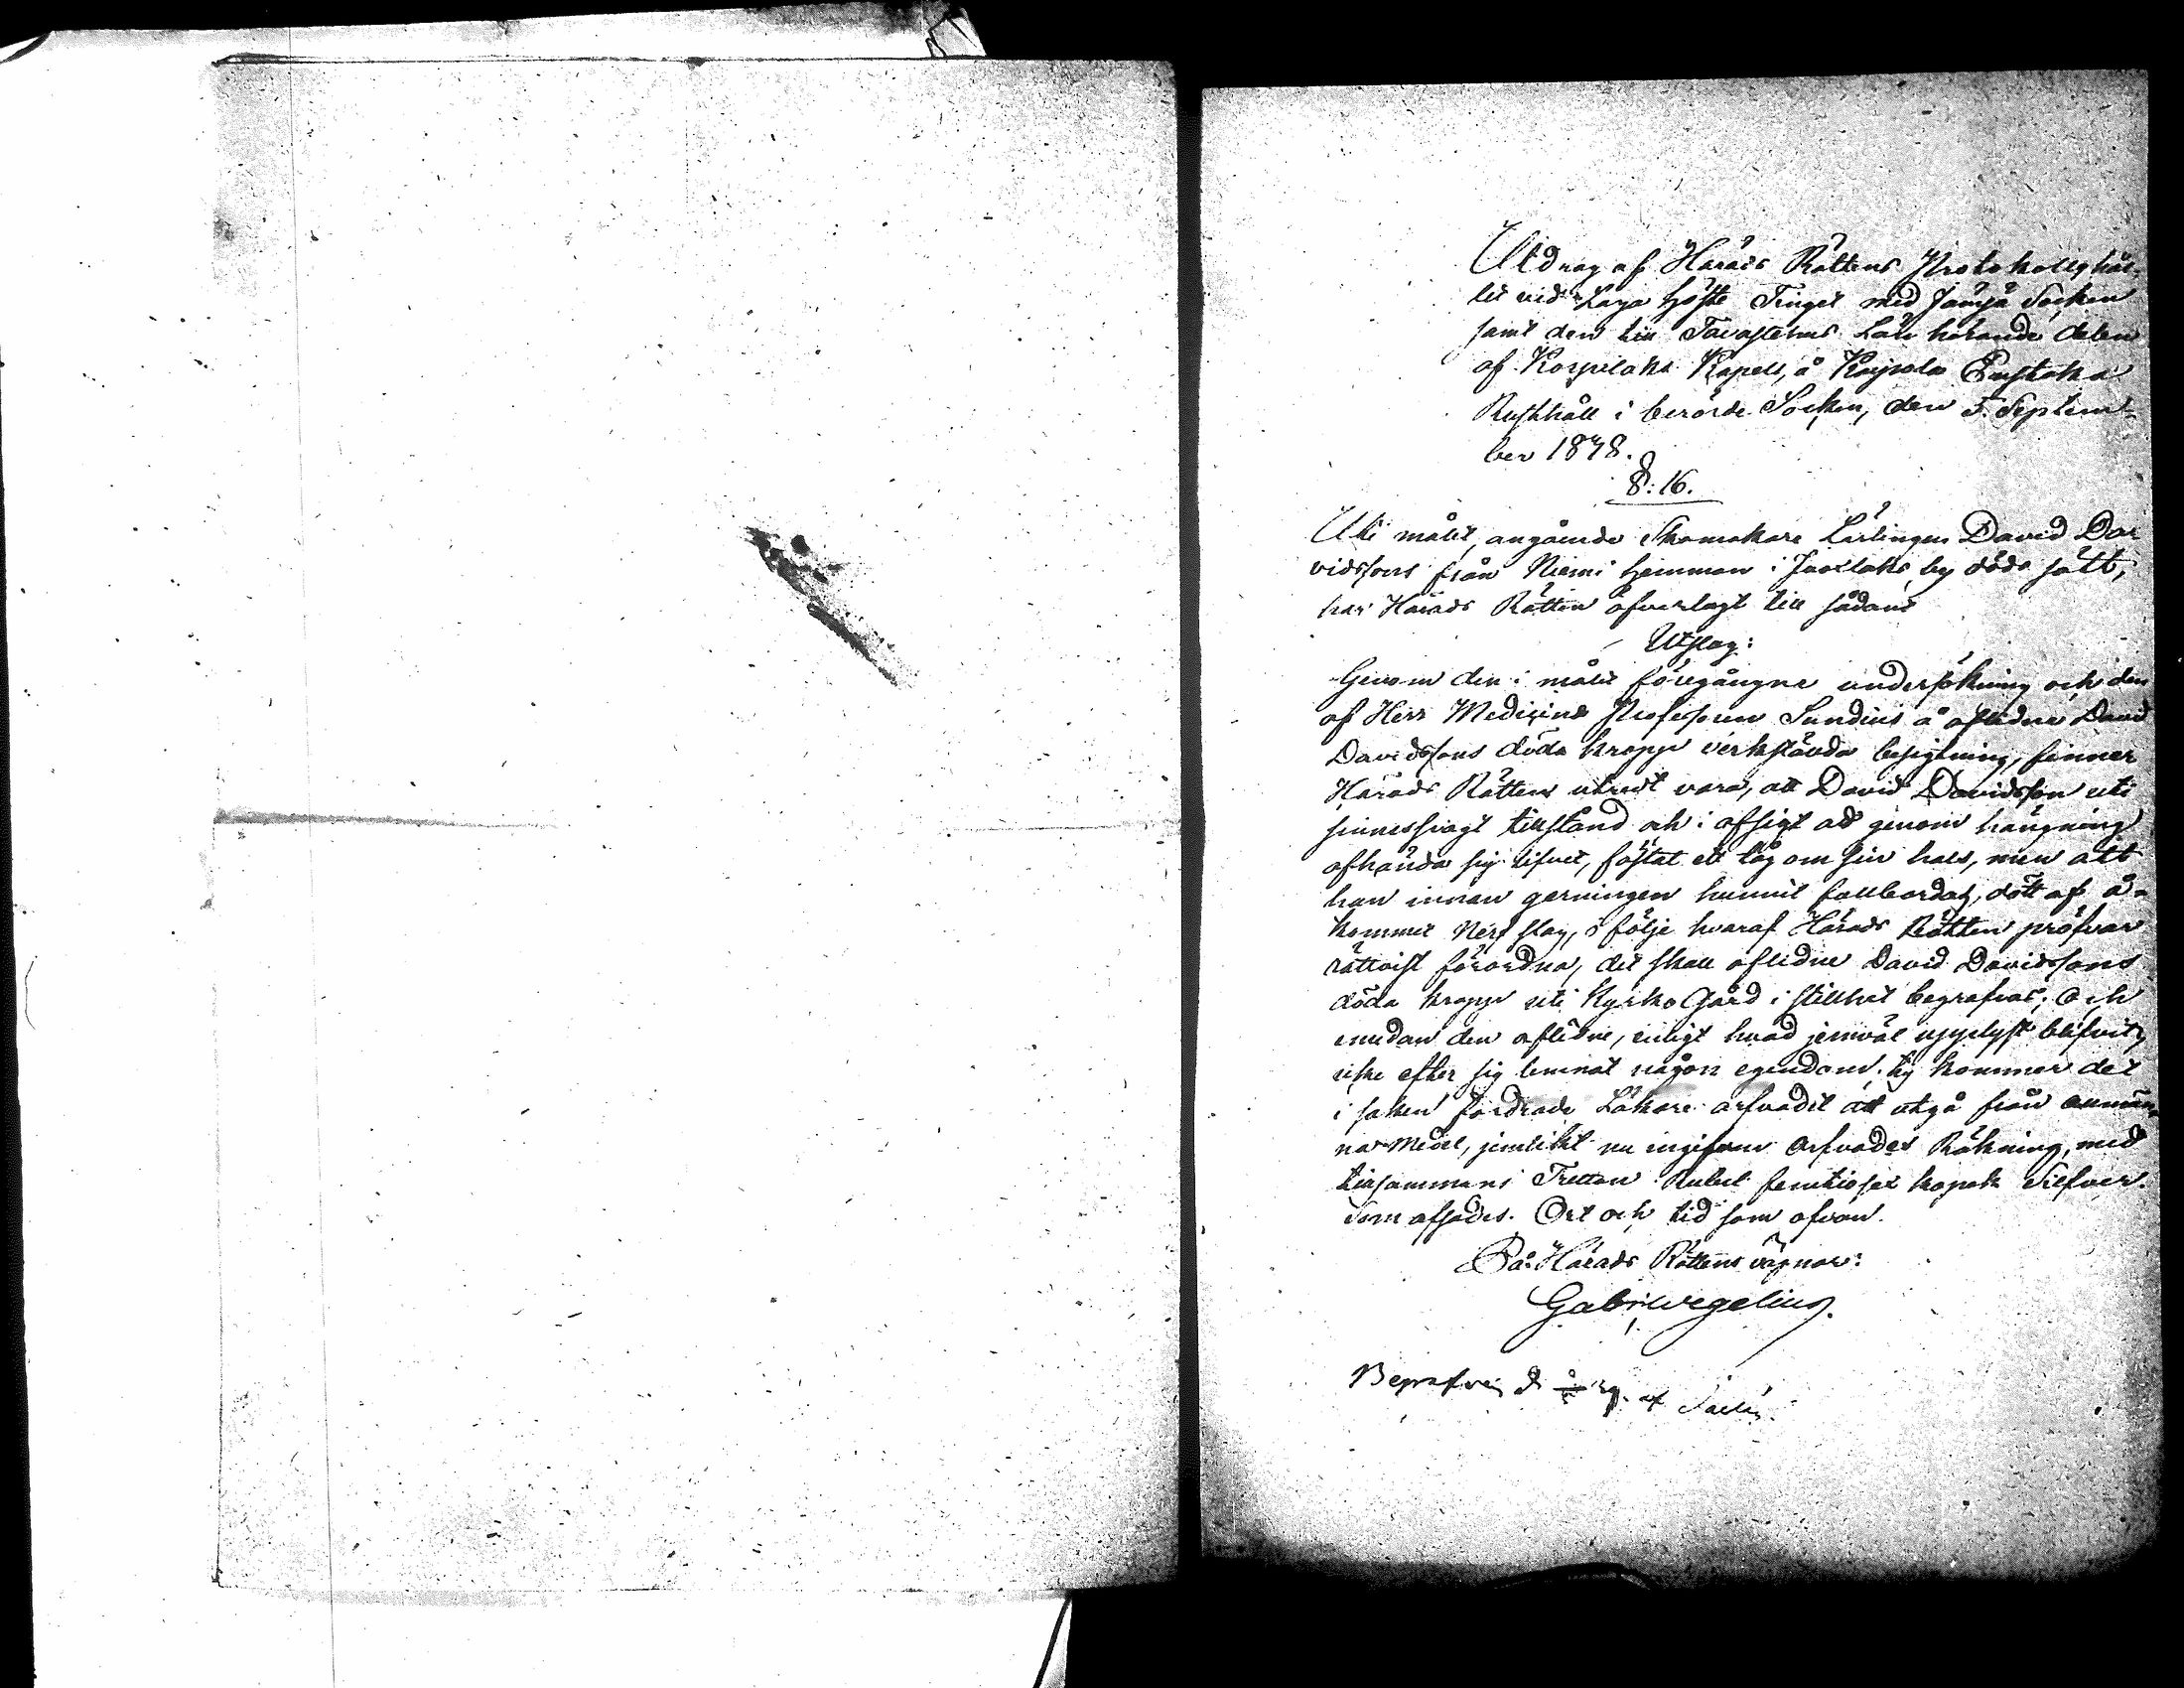 Utdrag af Härads Rättens Protokoll, hål-
let vid Laga Höste Tinget med Jämsä Socken
samt den till Tavastehus Län hörande delen
af Korpilaks Kapell, å Kaipola
Rusthåll i berörde Socken, den 5. Septem-
ber 1848.
§: 16.
Uti målet, angående Skomakare Lärlingen David Da-
vidssons från Niemi hemman i by döda sätt,
har Härads Rätten öfverlagt till sådant
Utslag:
Genom den i målet föregångna undersökning och den
af Herr Medicine Professoren Sundius å aflidne David
Davidssons döda kropp verkstälda besigtning, finner
Härads Rätten utredt vara, att David Davidsson uti
sinnessvagt tillstånd och i afsigt att genom hängning
afhända sig lifvet, fästat ett tåg om sin hals, men att
han innan gerningen hunnit fullbordas, dött af å-
kommet Nerfslag, i följe hvaraf Härads Rätten pröfvar
rättvist förordna, det skall aflidne David Davidssons
döda kropp uti Kyrko Gård i stillhet begrafvas; Och
emedan den aflidne, enligt hvad jemväl upplyst blifvit,
icke efter sig lemnat någon egendom; ty kommer det
i saken fordrade Läkare arfvodet att utgå från allmän-
na medel, jemlikt nu ingifven Arfvodes Räkning, med
tillsammans Tretton Rubel femtiosex kopek Silfver.
Som afsades. Ort och tid som ofvan.
På Härads Rättens vägnar:
Gab: Wegelius.
Begrafven d af